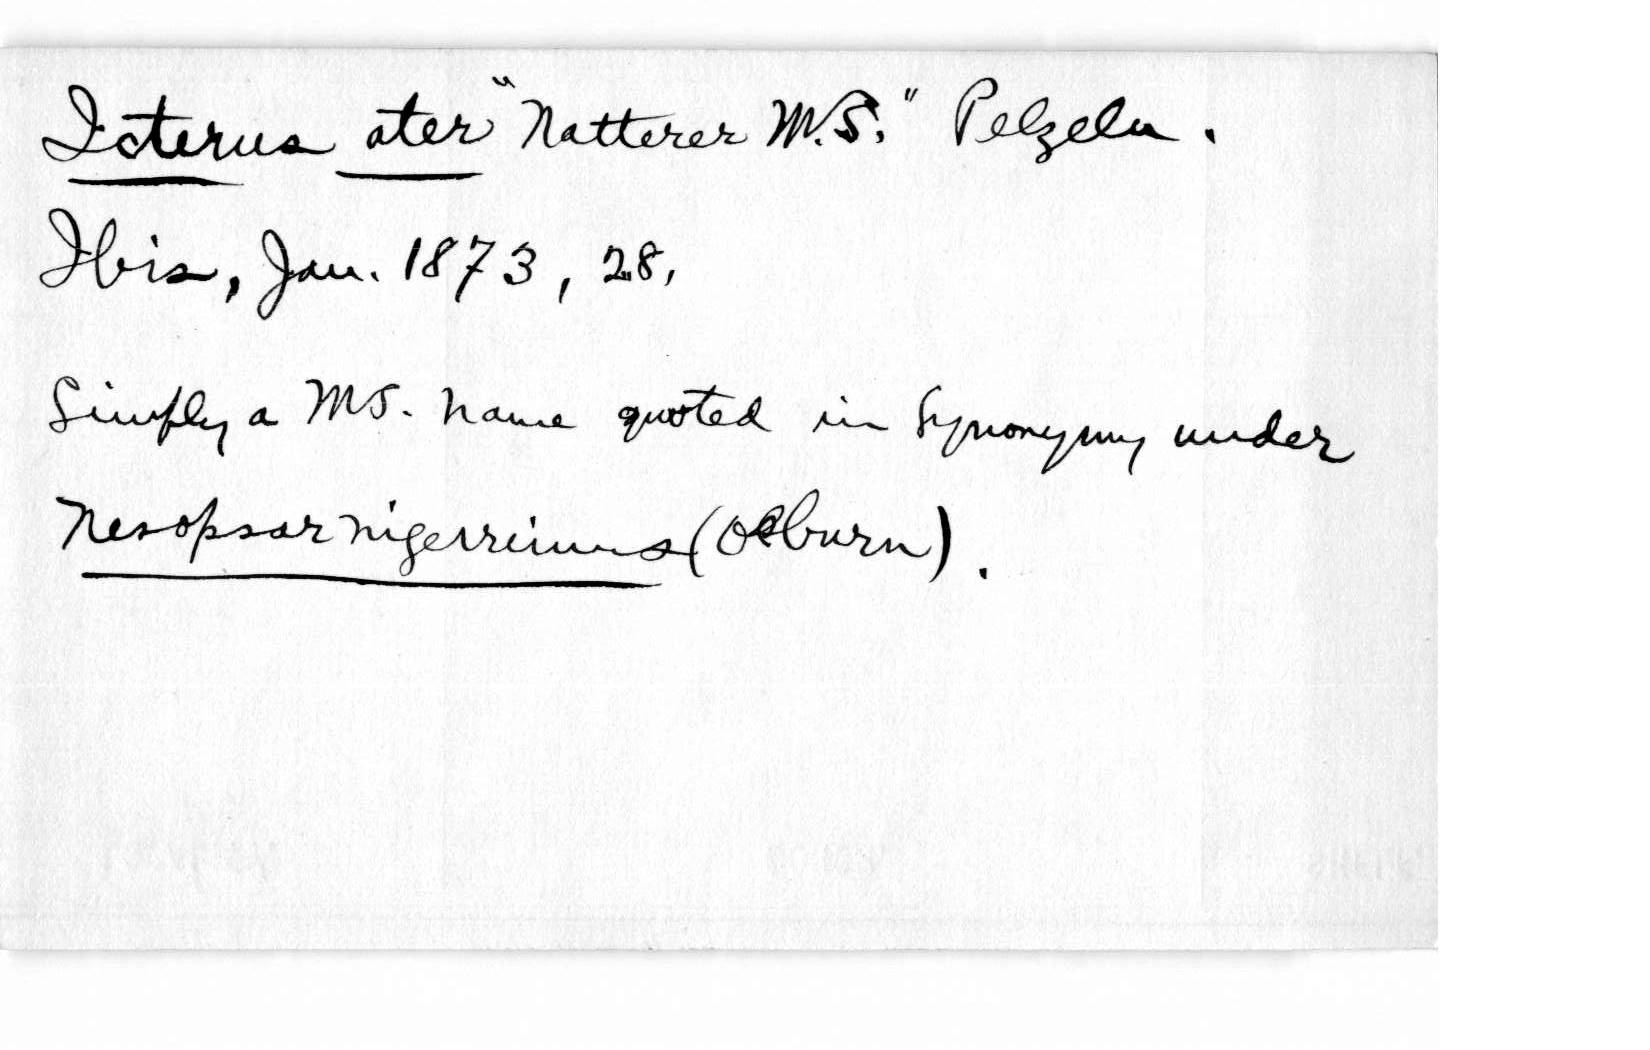 Icterus ater "Natterer M.S." Pelzeln.
Ibis, Jan. 1873, 28.
Simply a MS. name quoted in synonymy under
Nesopsar nigerrimus (Osburn).